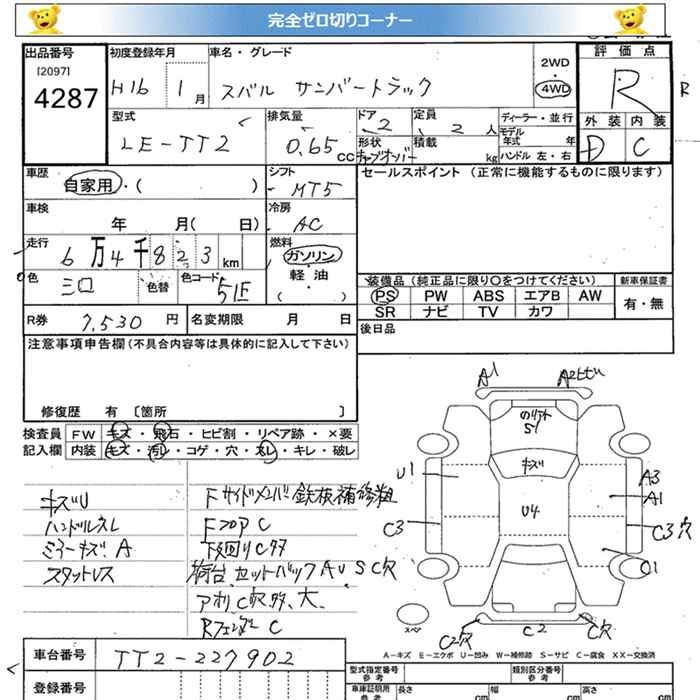 完全ゼロ切りコーナー
出品番号
[2097]
4287
初度登録年月
H16 1月
車名・グレード
スバル サンバートラック
2WD
・
4WD
評価点
R
R
外装 内装
D C
型式
LE-TT2
排気量
0.65
CC
ドア
2
形状
キャブオーバー
定員
2人
積載
kg
ディーラー・並行
モデル年式 年
ハンドル 左・右
車歴
自家用・( )
シフト
MT5
セールスポイント (正常に機能するものに限ります)
車検
年 月( 日)
冷房
AC
走行
6万4千823km
燃料
ガソリン
軽・油
( )
色
シロ
色替
色コード
51E
装備品(純正品に限り〇をつけてください)
新車保証書
PS PW ABS エアB AW
SR ナビ TV カワ
有・無
R券 7,530円
名変期限 月 日
後日品
注意事項申告欄(不具合内容等は具体的に記入して下さい)
修復歴 有 [箇所 ]
検査員
記入欄
FW キズ・飛石・ヒビ割・リペア跡・×要
内装 キズ・汚レ・コゲ・穴・スレ・キレ・破レ
キズU
ハンドルスレ
ミラーキズ A
スタットレス
Fサイドメンバー鉄板補修粗
FフロアC
下回りC多
荷台 セットバックAUSC穴
アオリC穴多、大、
RフェンダーC
A1
S1
キズ
U4
U1
C3
A3
A1
C3穴
C1
C2穴
C2
C穴
スペア
A-キズ E-エクボ U-凹み W-補修跡 S-サビ C-腐食 XX-交換済
車台番号 TT2-227902
登録番号
型式指定番号
参考
類別区分番号
参考
車庫証明用
参考
長さ cm
幅 cm
高さ cm